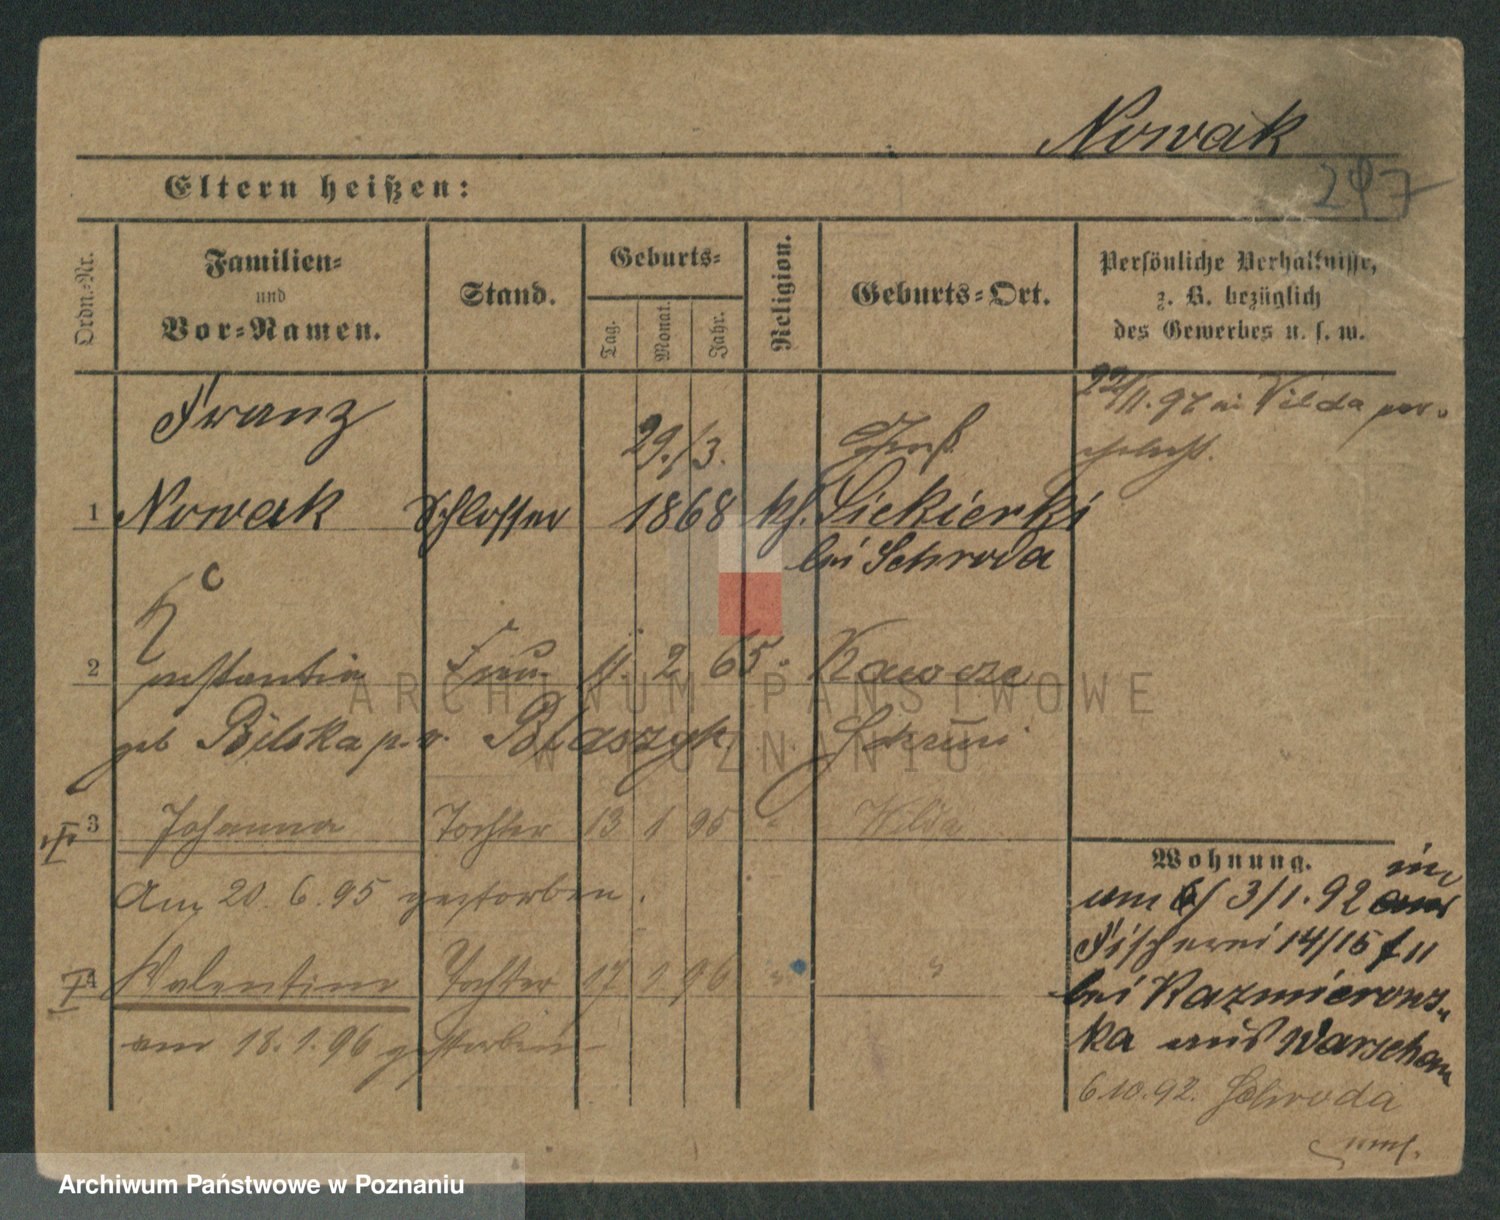 Nowak
247
Eltern heißen:
Ordn.-Nr.
Familien-
und
Vor-Namen.
Stand.
Geburts-
Tag.
Monat.
Jahr.
Religion.
Geburts-Ort.
Persönliche Verhältnisse,
z. B. bezüglich
des Gewerbes u. s. w.
Franz 29./3. Groß
1 Nowak Schlosser 1868 kh. Siekierki
bei Schroda
22/11.97 in Wilda
c
2 Konstantia Frau 11. 2 65 "
geb Bilska Blaszyk
3 Johanna Tochter 13 1 95 " Wilda
Am 20. 6. 95 gestorben.
4 Valentine Tochter 17. 1. 96 " "
am 18. 1. 96 gestorben
Wohnung.
am 6/ 3/1. 92 in
Fischerei 14/15 f II
bei Kazmierows-
ka aus Warschau
6.10.92. Schroda
ARCHIWUM PAŃSTWOWE
W POZNANIU
Archiwum Państwowe w Poznaniu